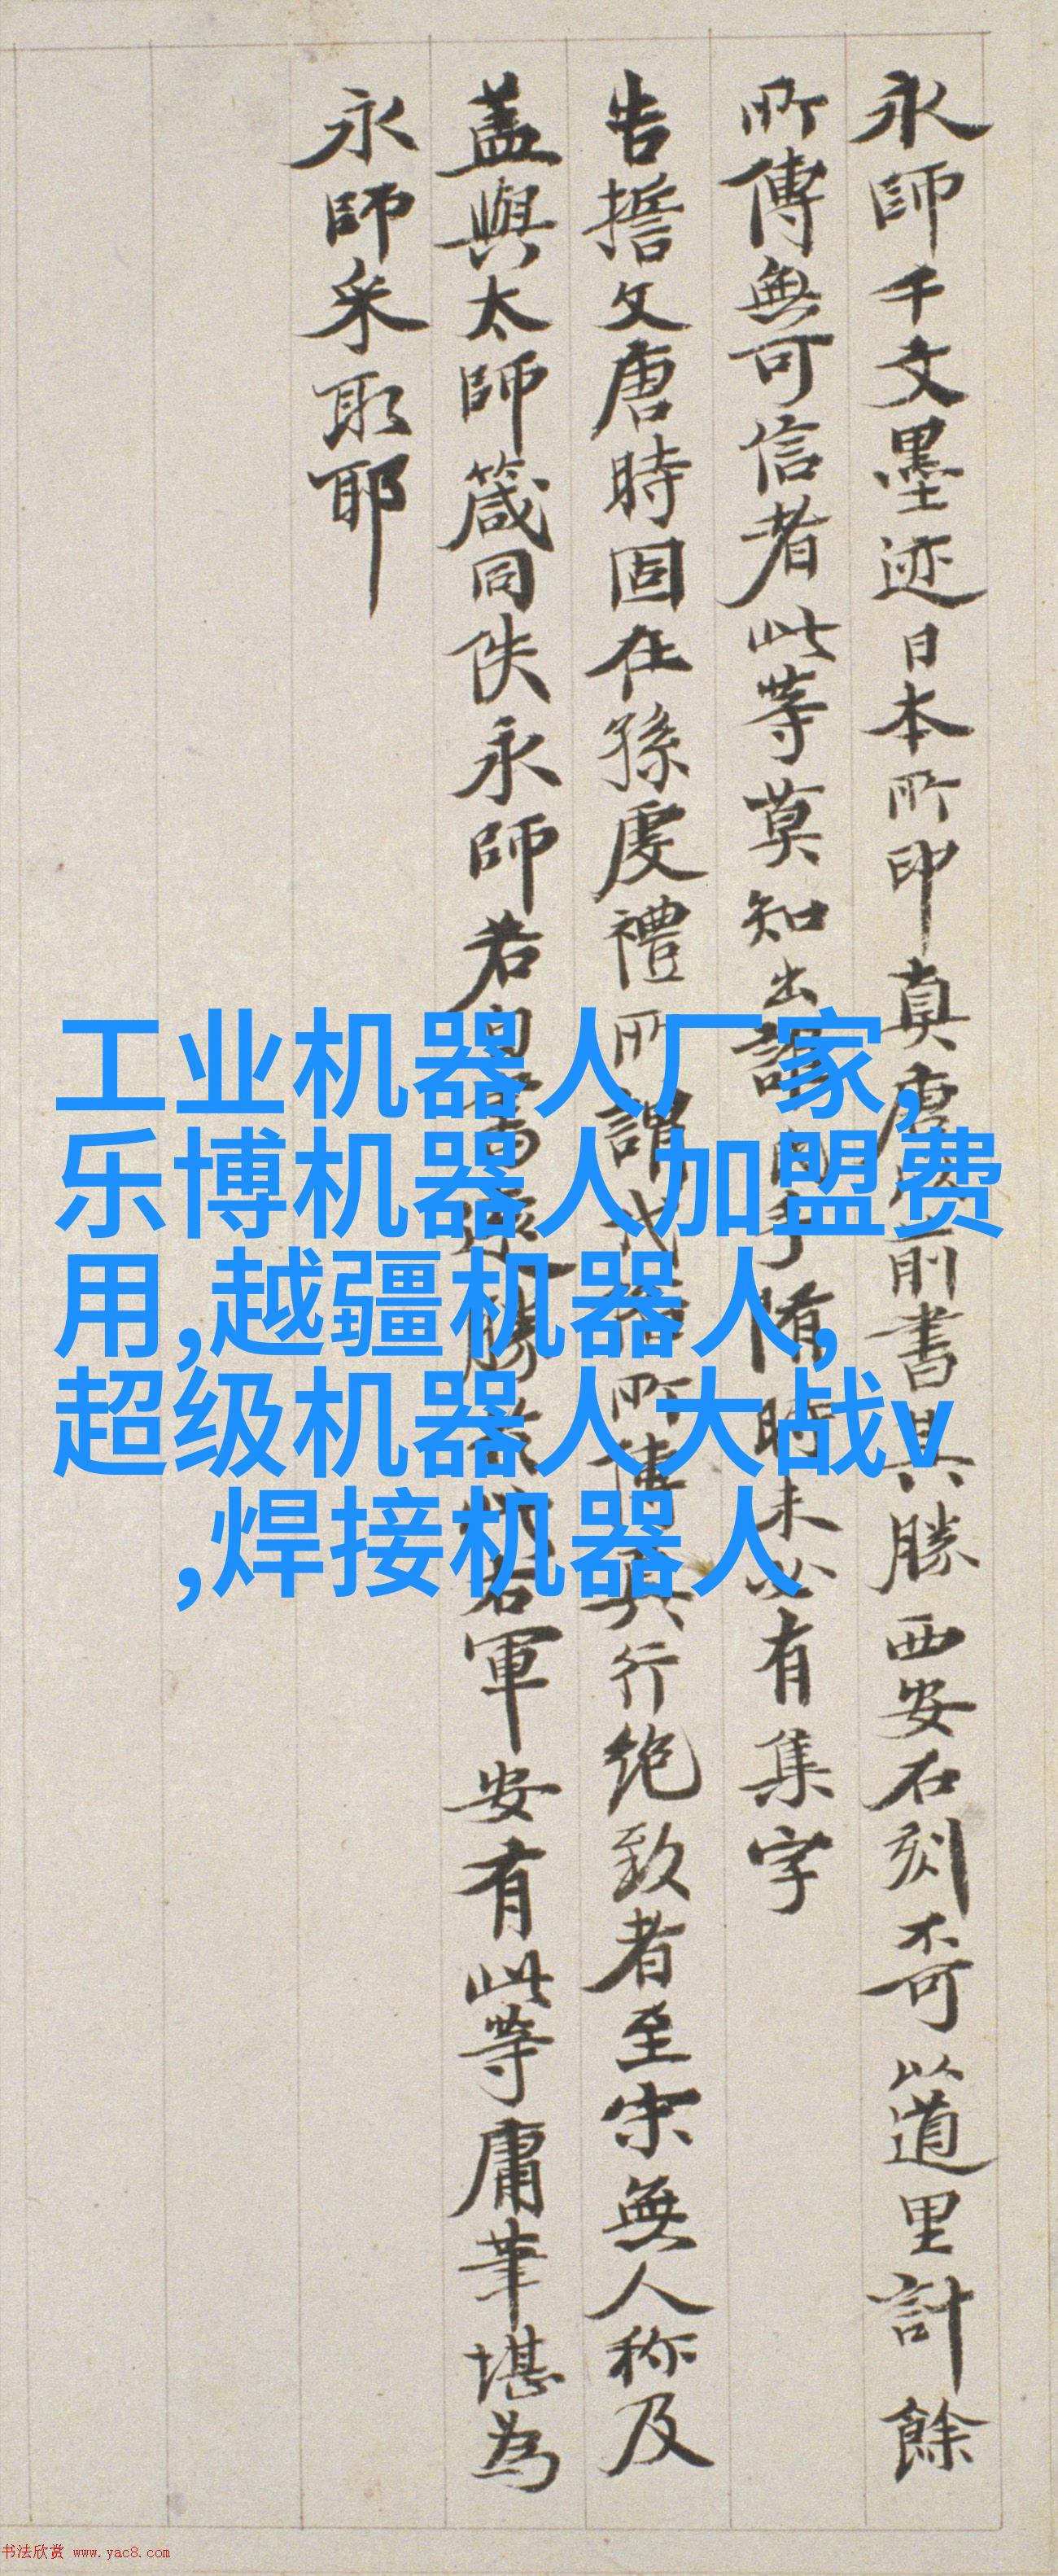 永師千文墨迹日本所印真唐以前書具勝西安石刻奇以道里計餘
所傳無可信者此等莫知出誰何手隋時未必有集字
告捨文唐時固在孫虔禮所謂代俗所傳真行絶致者至宋無人称及
盖與太師箴同佚永師若
軍安有此等庸筆堪為
永師采取耶
工业机器人厂家,
乐博机器人加盟费
用,越疆机器人,
超级机器人大战v
,焊接机器人
书法欣赏 www.yac8.com